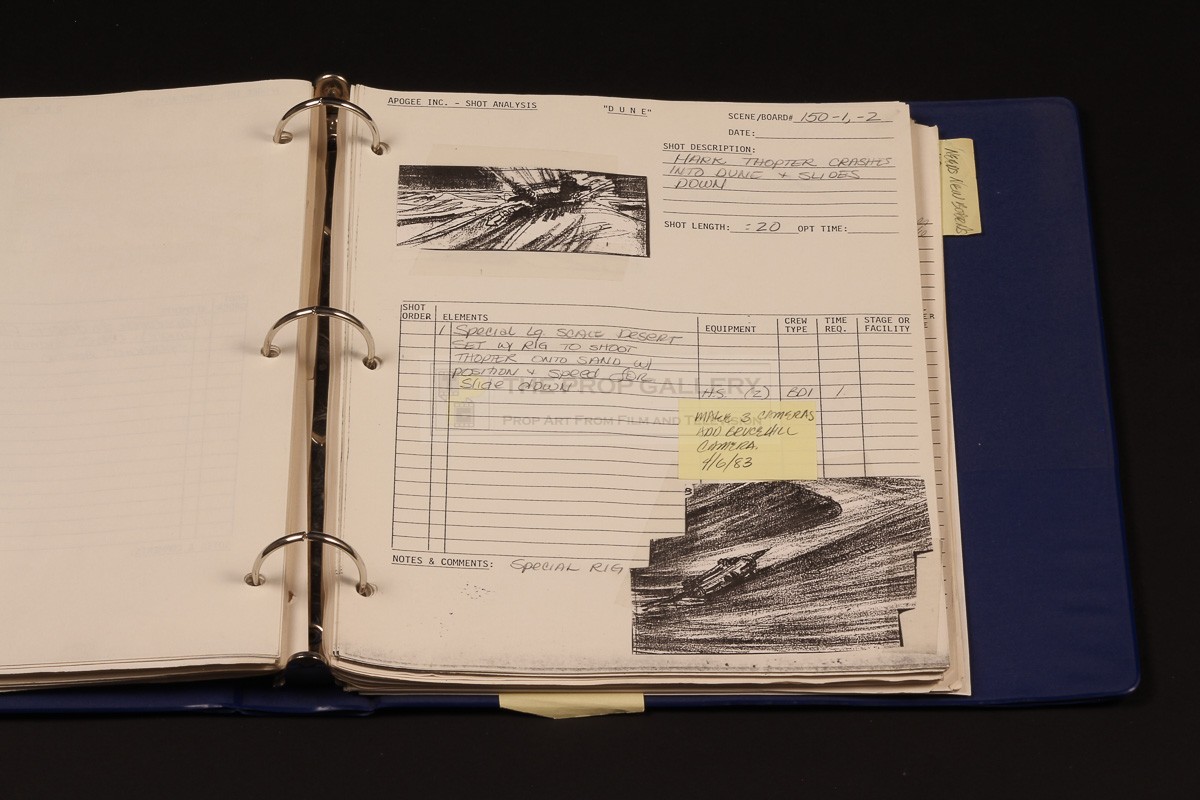 APOGEE INC. - SHOT ANALYSIS
"D U N E"
SCENE/BOARD# 150-1, -2
DATE:
SHOT DESCRIPTION:
HARK THOPTER CRASHES
INTO DUNE & SLIDES
DOWN
SHOT LENGTH: :20 OPT TIME:
NEEDS NEW BOARDS
SHOT ORDER
ELEMENTS
EQUIPMENT
CREW TYPE
TIME REQ.
STAGE OR FACILITY
1 SPECIAL LG SCALE DESERT
SET W/ RIG TO SHOOT
THOPTER ONTO SAND W/
POSITION & SPEED FOR
SLIDE DOWN
H.S. (2) BD1 1
THE PROP GALLERY
PROP ART FROM FILM AND
MAKE 3 CAMERAS
ADD BRUCE HILL
CAMERA.
4/6/83
NOTES & COMMENTS: SPECIAL RIG